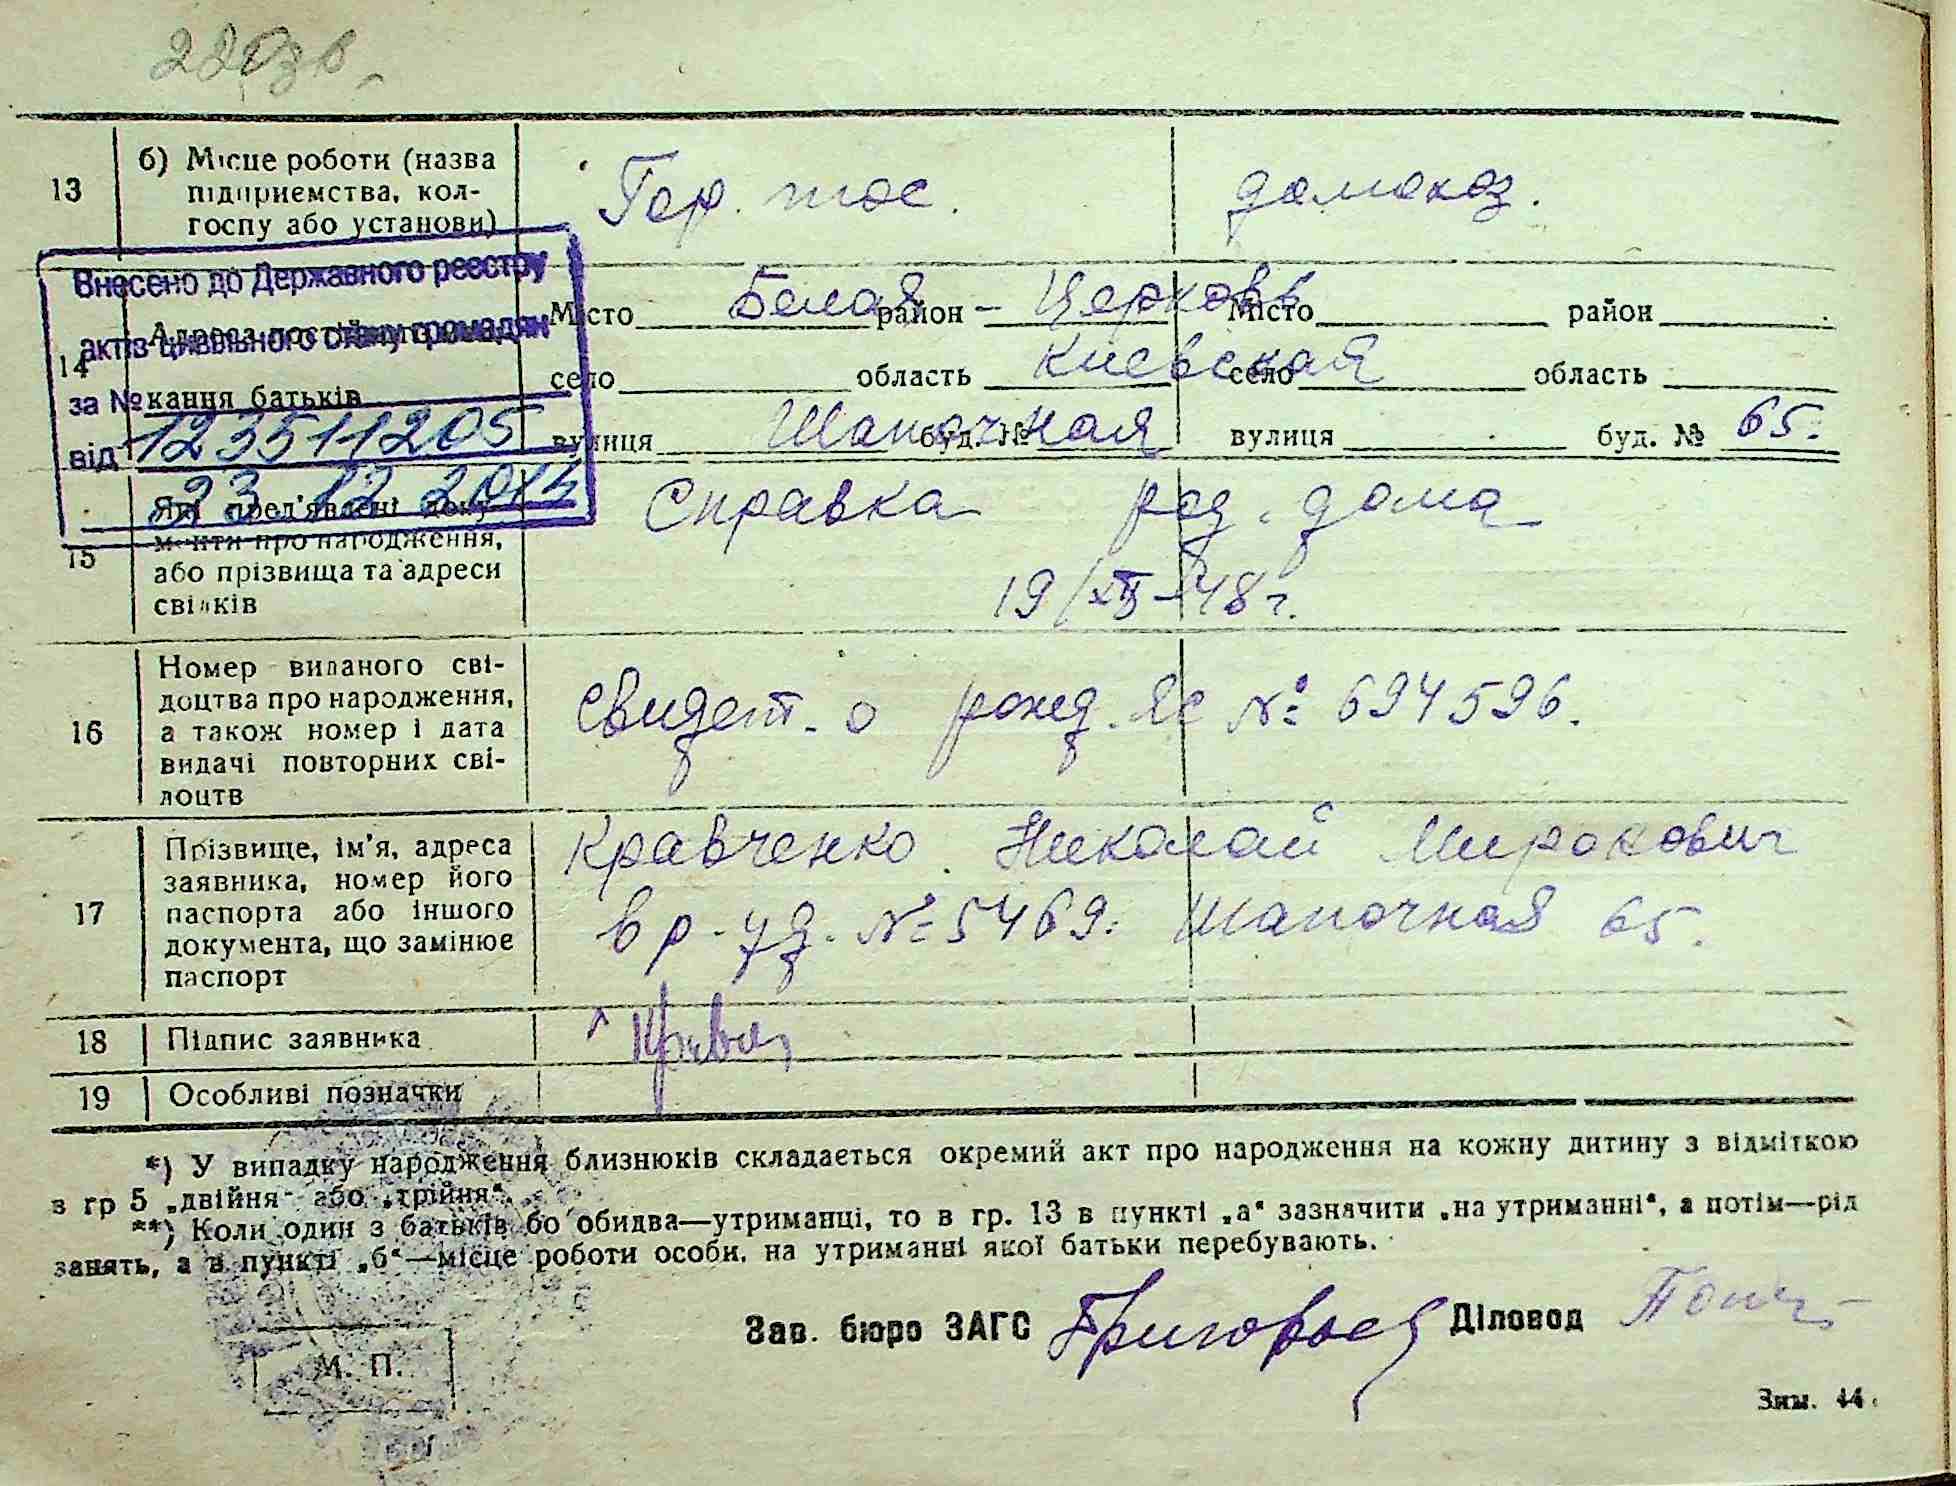 13
б) Місце роботи (назва
підприємства, кол-
госпу або установи)
домохоз.
Внесено до Державного реєстру
актів цивільного стану громадян
за №
123511205
від
23 12 2014
14
Адреса
кання батьків
Місто Белая район - Церковь Місто район
село область Киевская село область
вулиця Шапочная буд. № вулиця буд. № 65.
15
Які пред'явлені доку-
менти про народження,
або прізвища та адреси
свідків
Справка род. дома
19/XII-48 г.
16
Номер виданого сві-
доцтва про народження,
а також номер і дата
видачі повторних сві-
доцтв
Свидет. о рожд. ЯС № 694596.
17
Прізвище, ім'я, адреса
заявника, номер його
паспорта або іншого
документа, що замінює
паспорт
Кравченко Николай Миронович
вр. уд. № 5469. Шапочная 65.
18
Підпис заявника
19
Особливі позначки
*) У випадку народження близнюків складається окремий акт про народження на кожну дитину з відміткою
з гр 5 „двійня" або „трійня".
**) Коли один з батьків бо обидва—утриманці, то в гр. 13 в пункті „а" зазначити „на утриманні", а потім—рід
занять, а в пункті „б"—місце роботи особи, на утриманні якої батьки перебувають.
Зав. бюро ЗАГС Діловод
М. П.
Зам. 44